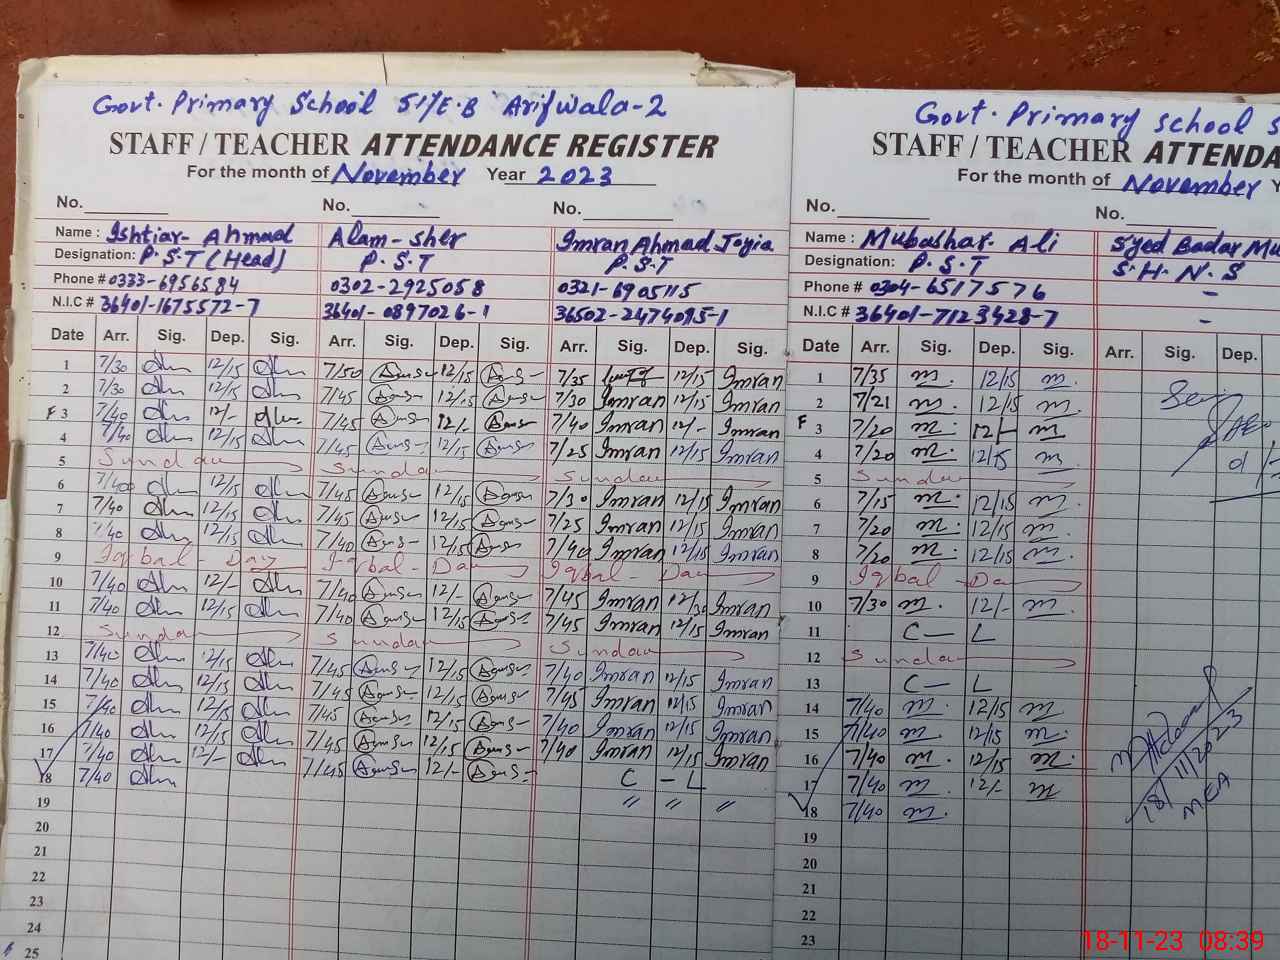 Govt. Primary School 51/E.B Arifwala-2
STAFF / TEACHER ATTENDANCE REGISTER
For the month of November Year 2023
No. No. No.
Name : Ishtiar- Ahmad Alam-sher Imran Ahmad Joyia
Designation: P.S.T (Head) P.S.T P.S.T
Phone # 0333-6956584 0302-2925058 0321-6905115
N.I.C # 36401-1675572-7 36401-0897026-1 36502-2474095-1
Date Arr. Sig. Dep. Sig. Arr. Sig. Dep. Sig. Arr. Sig. Dep. Sig.
1 7/30 12/15 7/50 12/15 7/35 12/15 Imran
2 7/30 12/15 7/45 12/15 7/30 Imran 12/15 Imran
F 3 7/40 12/- 7/45 12/- 7/40 Imran 12/- Imran
4 7/40 12/15 7/45 12/15 7/25 Imran 12/15 Imran
5 Sunday Sunday Sunday
6 7/40 12/15 7/45 12/15 7/30 Imran 12/15 Imran
7 7/40 12/15 7/45 12/15 7/25 Imran 12/15 Imran
8 7/40 12/15 7/40 12/15 7/40 Imran 12/15 Imran
9 Iqbal - Day Iqbal - Day Iqbal - Day
10 7/40 12/- 7/40 12/- 7/45 Imran 12/30 Imran
11 7/40 12/15 7/40 12/15 7/45 Imran 12/15 Imran
12 Sunday Sunday Sunday
13 7/40 12/15 7/45 12/15 7/40 Imran 12/15 Imran
14 7/40 12/15 7/45 12/15 7/45 Imran 12/15 Imran
15 7/40 12/15 7/45 12/15 7/40 Imran 12/15 Imran
16 7/40 12/15 7/45 12/15 7/40 Imran 12/15 Imran
17 7/40 12/- 7/45 12/- C - L
18 7/40 " " "
19
20
21
22
23
24
25
Govt. Primary School 5
STAFF / TEACHER ATTENDA
For the month of November Y
No. No.
Name : Mubashar. Ali Syed Badar Mu
Designation: P.S.T S.H.N.S
Phone # 0304-6517576 -
N.I.C # 36401-7123428-7 -
Date Arr. Sig. Dep. Sig. Arr. Sig. Dep.
1 7/35 m. 12/15 m.
2 7/21 m. 12/15 m.
F 3 7/20 m. 12/- m
4 7/20 m. 12/15 m.
5 Sunday
6 7/15 m. 12/15 m.
7 7/20 m. 12/15 m.
8 7/20 m. 12/15 m.
9 Iqbal - Day
10 7/30 m. 12/- m.
11 C - L
12 Sunday
13 C - L
14 7/40 m. 12/15 m
15 7/40 m. 12/15 m.
16 7/40 m. 12/15 m.
17 7/40 m. 12/- m
18 7/40 m.
19
20
21
22
23
18/11/2023
MEA
18-11-23 08:39